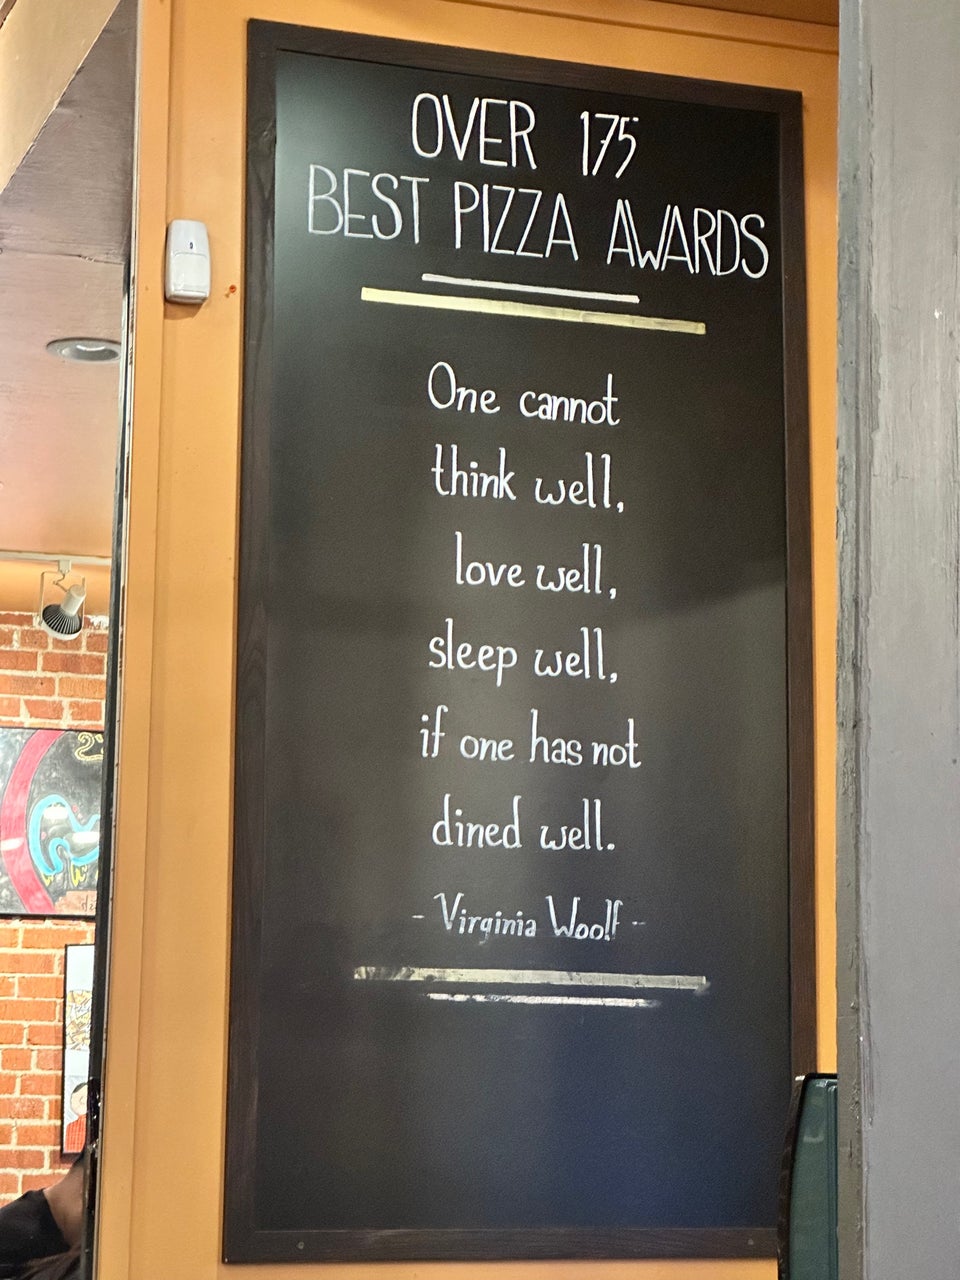 OVER 175
BEST PIZZA AWARDS
One cannot
think well,
love well,
sleep well,
if one has not
dined well.
- Virginia Woolf -